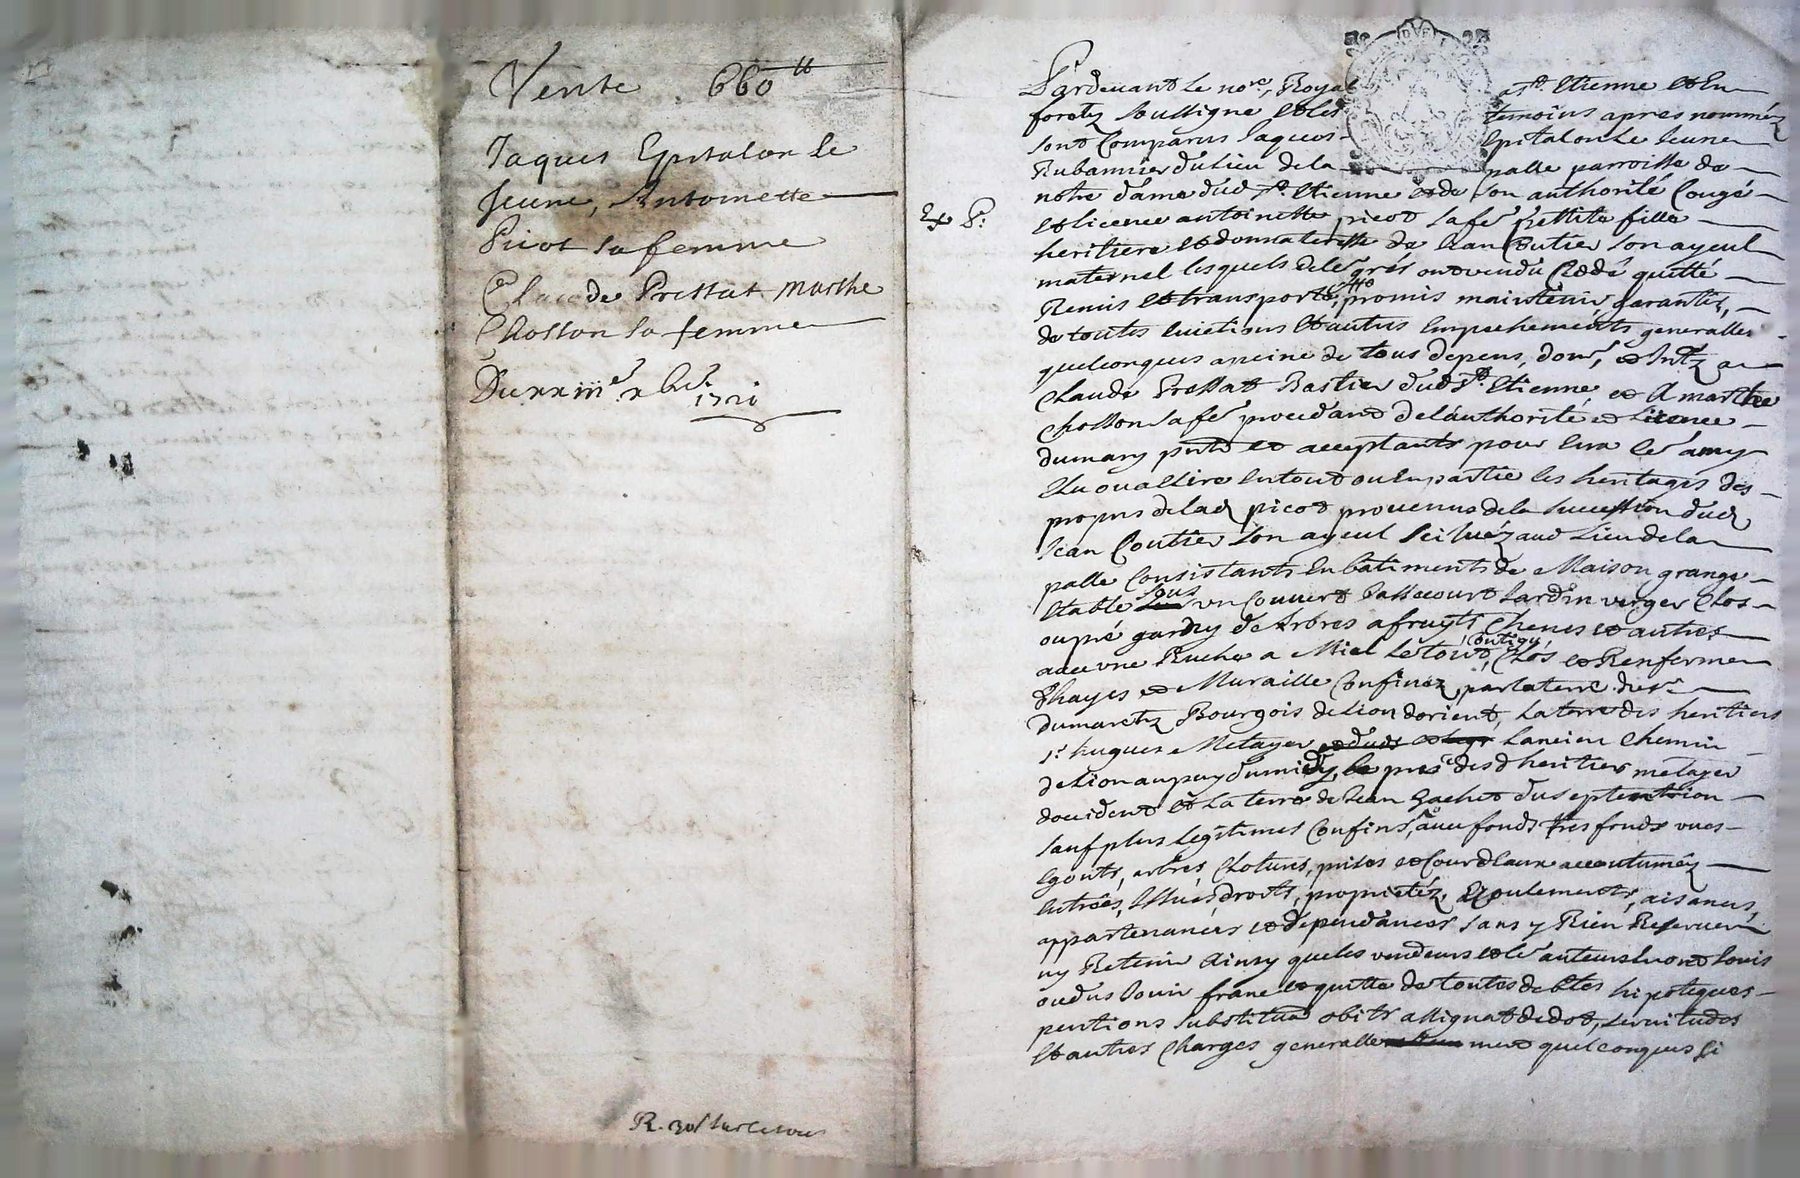 Vente 660 tt
Jaques Epitalon le
Jeune, Antoinette
Picot sa femme
Claude Pressat Marthe
Chosson sa femme
Du xxiiie xbre
1721
R. sur le tour
Ex P:
Pardevant Le nore, Royal a St. Etienne et En
foretz soussigne et les temoins apres nommez
sont Comparus Jaques Epitalon Le Jeune
Rubannier du Lieu de la palle parroisse de
notre dame dud St. Etienne et de son authorité Congé
et licence antoinette picot sa fe petite fille
heritiere et donnateresse de Jean Coutier son ayeul
maternel lesquels de leur grés ont vendu Cédé quitté
Remis et transporté, promis maintenir garantir,
de toutes Evictions et autres Empechements generalles
quelconques a peine de tous depens, dom, et Intz a
Claude Pressat Bastier dud St. Etienne, et A marthe
Chosson sa fe procedant de l'authorité et Licence
du mary pnts et acceptants pour Eux leur amy
Elu ou a Elire En tout ou En partie les heritages des
propres de lad picot provenus de la succession dud
Jean Coutier son ayeul scituéz aud Lieu de la
palle Consistants En batiments de Maison grange
Etable sous un Couvert bassecourt Jardin verger Clos
ou pré garny de Arbres a fruyts Chenes et autres
avec une Ruche a Miel Le tout Contigu, Clos et Renferme
d'hayes et Muraille Confinez, par la terre du sr
dumaretz Bourgois de Lion d'orient, La terre des heritiers
sr. hugues Metayer Lancien Chemin
de Lion au puy du midy, pré des d heritier metayer
d'occident et La terre de Jean Gachet du septentrion
sauf plus Legitimes Confins, avec fonds tres fonds vues
Egouts, arbres Clotures, prises et Cour d'Eaux accoutuméz
Entrées, Issues, droits, proprietéz, Ecoulements, aisances,
appartenances et dependances sans y Rien Reserver
ny Retenir Ainsy que les vendeurs et leur auteurs En ont Jouis
ou dus Jouir franc et quitte de toutes debtes hipoteques
pentions substituon obits assignat de dot, servitudes
et autres Charges generallement quelconques si